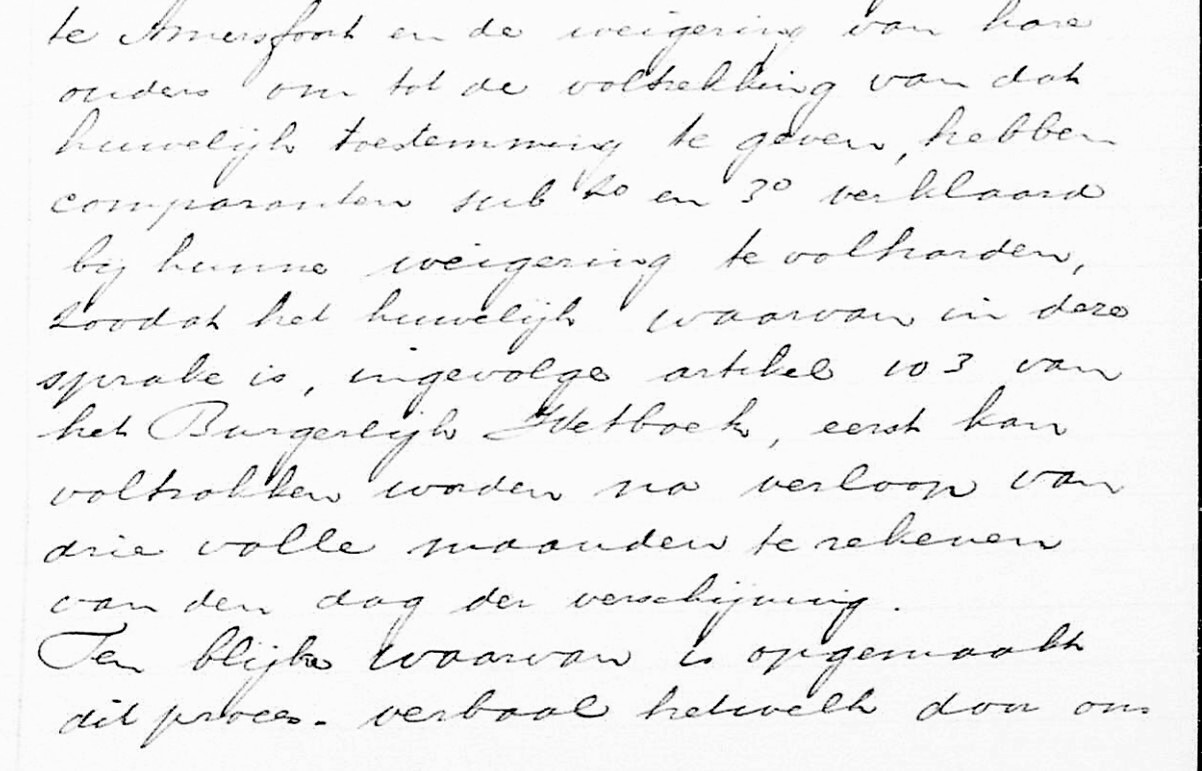 te Amersfoort en de weigering van hare
ouders om tot de voltrekking van dat
huwelijk toestemming te geven, hebben
comparanten sub 2o en 3o verklaard
bij hunne weigering te volharden,
zoodat het huwelijk waarvan in deze
sprake is, ingevolge artikel 103 van
het Burgerlijk Wetboek, eerst kan
voltrokken worden na verloop van
drie volle maanden te rekenen
van den dag der verschijning.
Ten blijke waarvan is opgemaakt
dit proces-verbaal hetwelk door ons